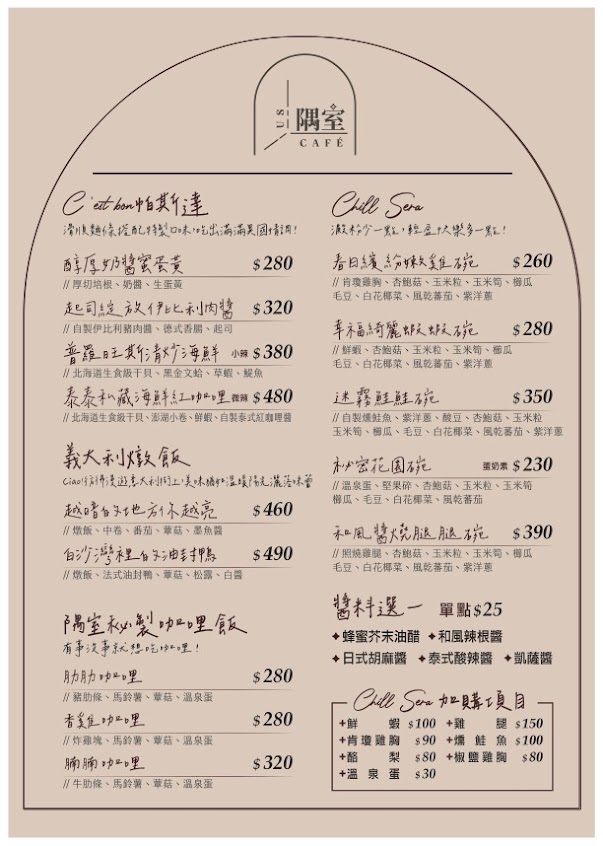 US
隅室
CAFÉ
C'est bon 帕斯達
滑順麵條搭配特製口味,吃出滿滿異國情調!
醇厚奶醬蜜蛋黃 $280
// 厚切培根、奶醬、生蛋黃
起司綻放伊比利肉醬 $320
// 自製伊比利豬肉醬、德式香腸、起司
普羅旺斯清炒海鮮 小辣 $380
// 北海道生食級干貝、黑金文蛤、草蝦、鯷魚
泰泰私藏海鮮紅咖哩 微辣 $480
// 北海道生食級干貝、澎湖小卷、鮮蝦、自製泰式紅咖哩醬
義大利燉飯
越暗的地方你越亮 $460
// 燉飯、中卷、番茄、蕈菇、墨魚醬
白沙灣裡的油封鴨 $490
// 燉飯、法式油封鴨、蕈菇、松露、白醬
隅室秘製咖哩飯
有事沒事就想吃咖哩!
肋肋咖哩 $280
// 豬肋條、馬鈴薯、蕈菇、溫泉蛋
香雞咖哩 $280
// 炸雞塊、馬鈴薯、蕈菇、溫泉蛋
腩腩咖哩 $320
// 牛肋條、馬鈴薯、蕈菇、溫泉蛋
Chill Sera
澱粉少一點,輕盈快樂多一點!
春日繽紛嫩雞碗 $260
// 肯瓊雞胸、杏鮑菇、玉米粒、玉米筍、櫛瓜
毛豆、白花椰菜、風乾蕃茄、紫洋蔥
幸福綺麗蝦蝦碗 $280
// 鮮蝦、杏鮑菇、玉米粒、玉米筍、櫛瓜
毛豆、白花椰菜、風乾蕃茄、紫洋蔥
迷霧鮭鮭碗 $350
// 自製燻鮭魚、紫洋蔥、酸豆、杏鮑菇、玉米粒
玉米筍、櫛瓜、毛豆、白花椰菜、風乾蕃茄、紫洋蔥
秘密花園碗 蛋奶素 $230
// 溫泉蛋、堅果碎、杏鮑菇、玉米粒、玉米筍
櫛瓜、毛豆、白花椰菜、風乾蕃茄
和風醬燒腿腿碗 $390
// 照燒雞腿、杏鮑菇、玉米粒、玉米筍、櫛瓜
毛豆、白花椰菜、風乾蕃茄、紫洋蔥
醬料選一 單點$25
✦蜂蜜芥末油醋 ✦和風辣根醬
✦日式胡麻醬 ✦泰式酸辣醬 ✦凱薩醬
Chill Sera 加購項目
+鮮蝦 $100 +雞腿 $150
+肯瓊雞胸 $90 +燻鮭魚 $100
+酪梨 $80 +椒鹽雞胸 $80
+溫泉蛋 $30